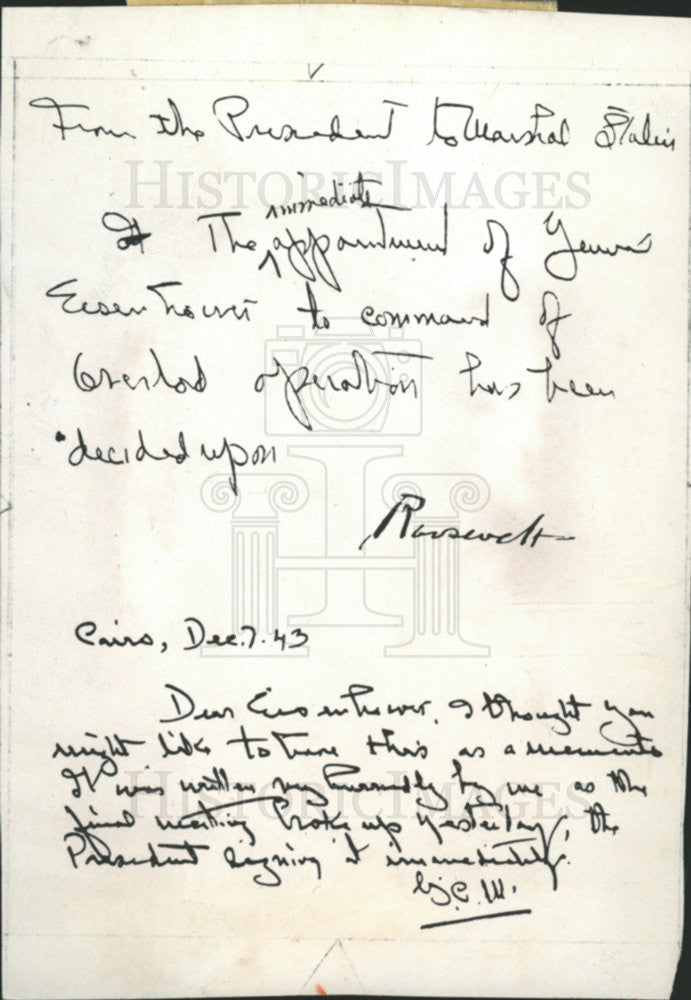 From the President to Marshal Stalin
immediate
The appointment of General
Eisenhower to command of
Overlord operation has been
decided upon
Roosevelt
Cairo, Dec. 7. 43
Dear Eisenhower, I thought you
might like to have this as a memento
It was written very hurriedly by me as the
final meeting broke up yesterday, the
President signing it immediately.
G.C.M.
HISTORIC IMAGES
HISTORIC IMAGES